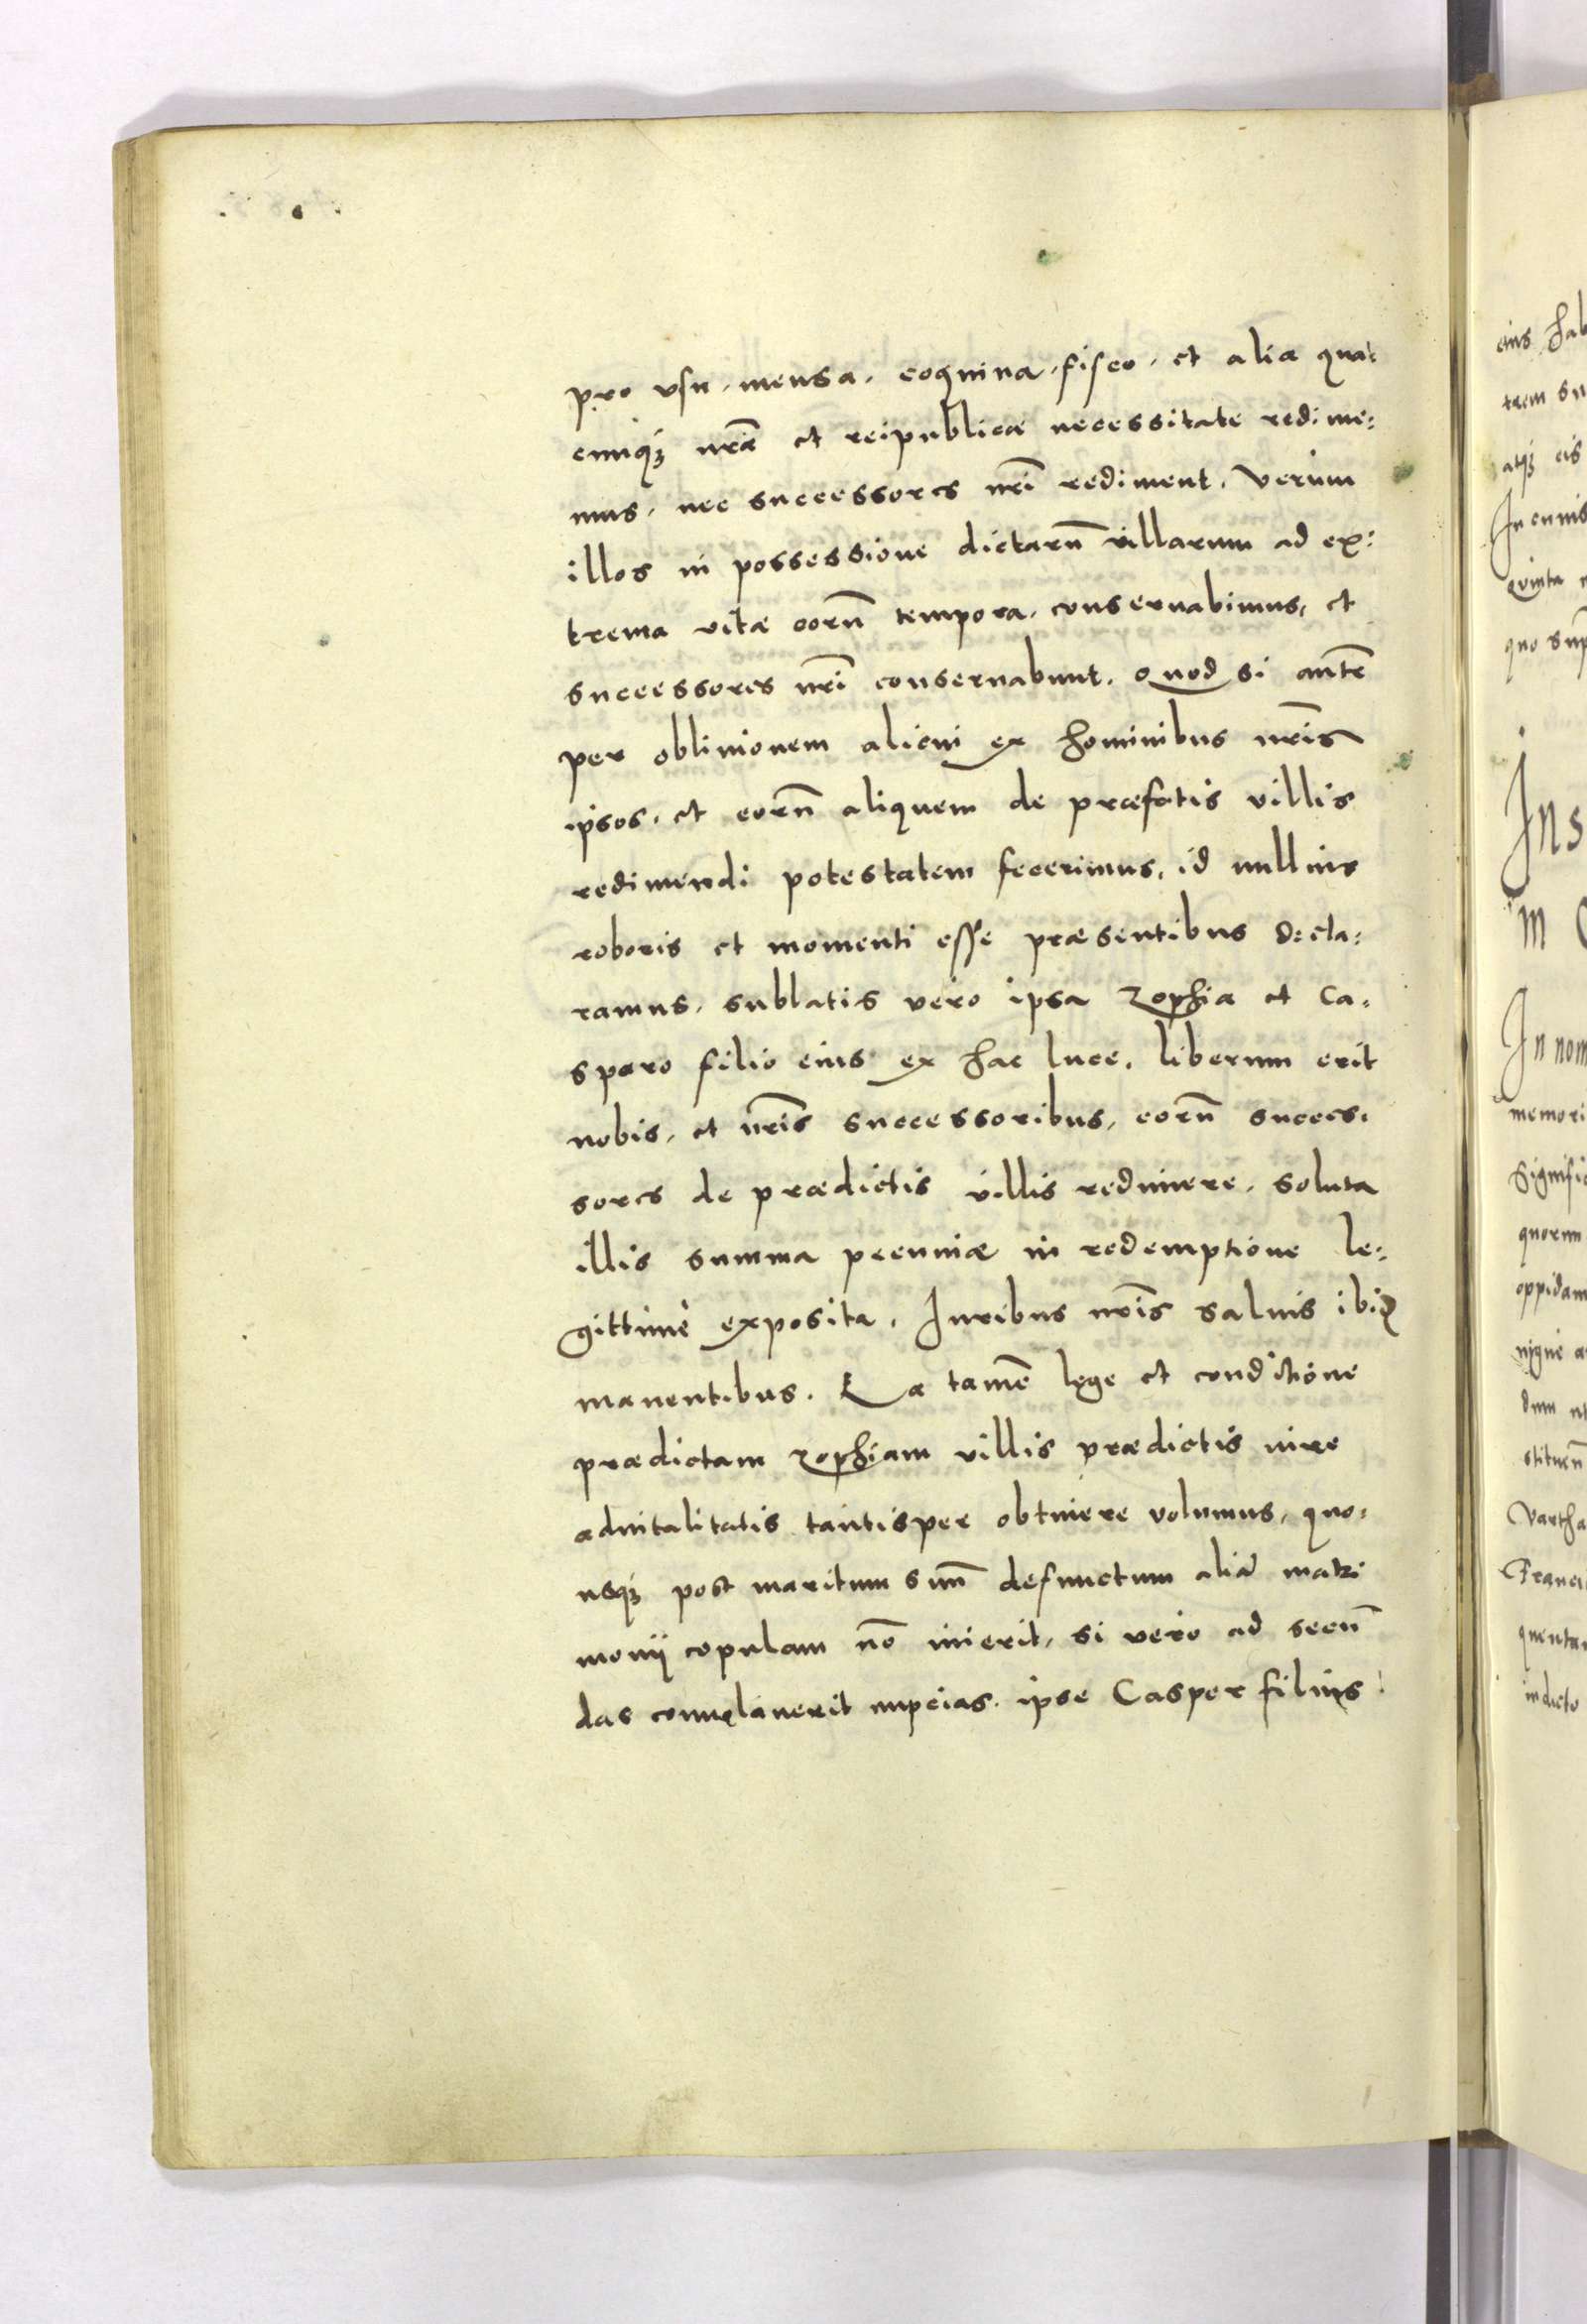 pro vsu, mensa, coquina, fisco, et alia qua=
cunq₃ nrã et reipublicæ necessitate redime=
mus, nec successores nrĩ rediment. Verùm
illos in possessione dictarũ villarum ad ex=
trema vitæ eorũ tempora, conseruabimus, et
successores nrĩ conseruabunt. Quod si autẽ
per obliuionem alicui ex hominibus nrĩs
ipsos, et eorũ aliquem de præfatis villis
redimendi potestatem fecerimus, id nullius
roboris et momenti esse præsentibus decla=
ramus, sublatis verò ipsa Zophia et Ca=
sparo filio eius ex hac luce, liberum erit
nobis, et nrĩs successoribus, eorũ succes=
sores de prædictis villis redimere, soluta
illis summa pecuniæ in redemptione le=
gittimè exposita, Iuribus nrĩs saluis ibid̃
manentibus. Ea tamẽ lege et conditione
prædictam Zophiam villis prædictis iure
aduitalitatis tantisper obtinere volumus, quo=
usq₃ post maritum suũ defunctum aliã matri
monij copulam nõ inierit, si verò ad secũ
das conuolauerit nupcias, ipse Casper filius
eius hab
trem su
atq₃ eis
In cuius
Quinta
quo sup
In s
m
In nom
memori
signific
quorum
oppidam
dum
Vartha
Franci
indicto